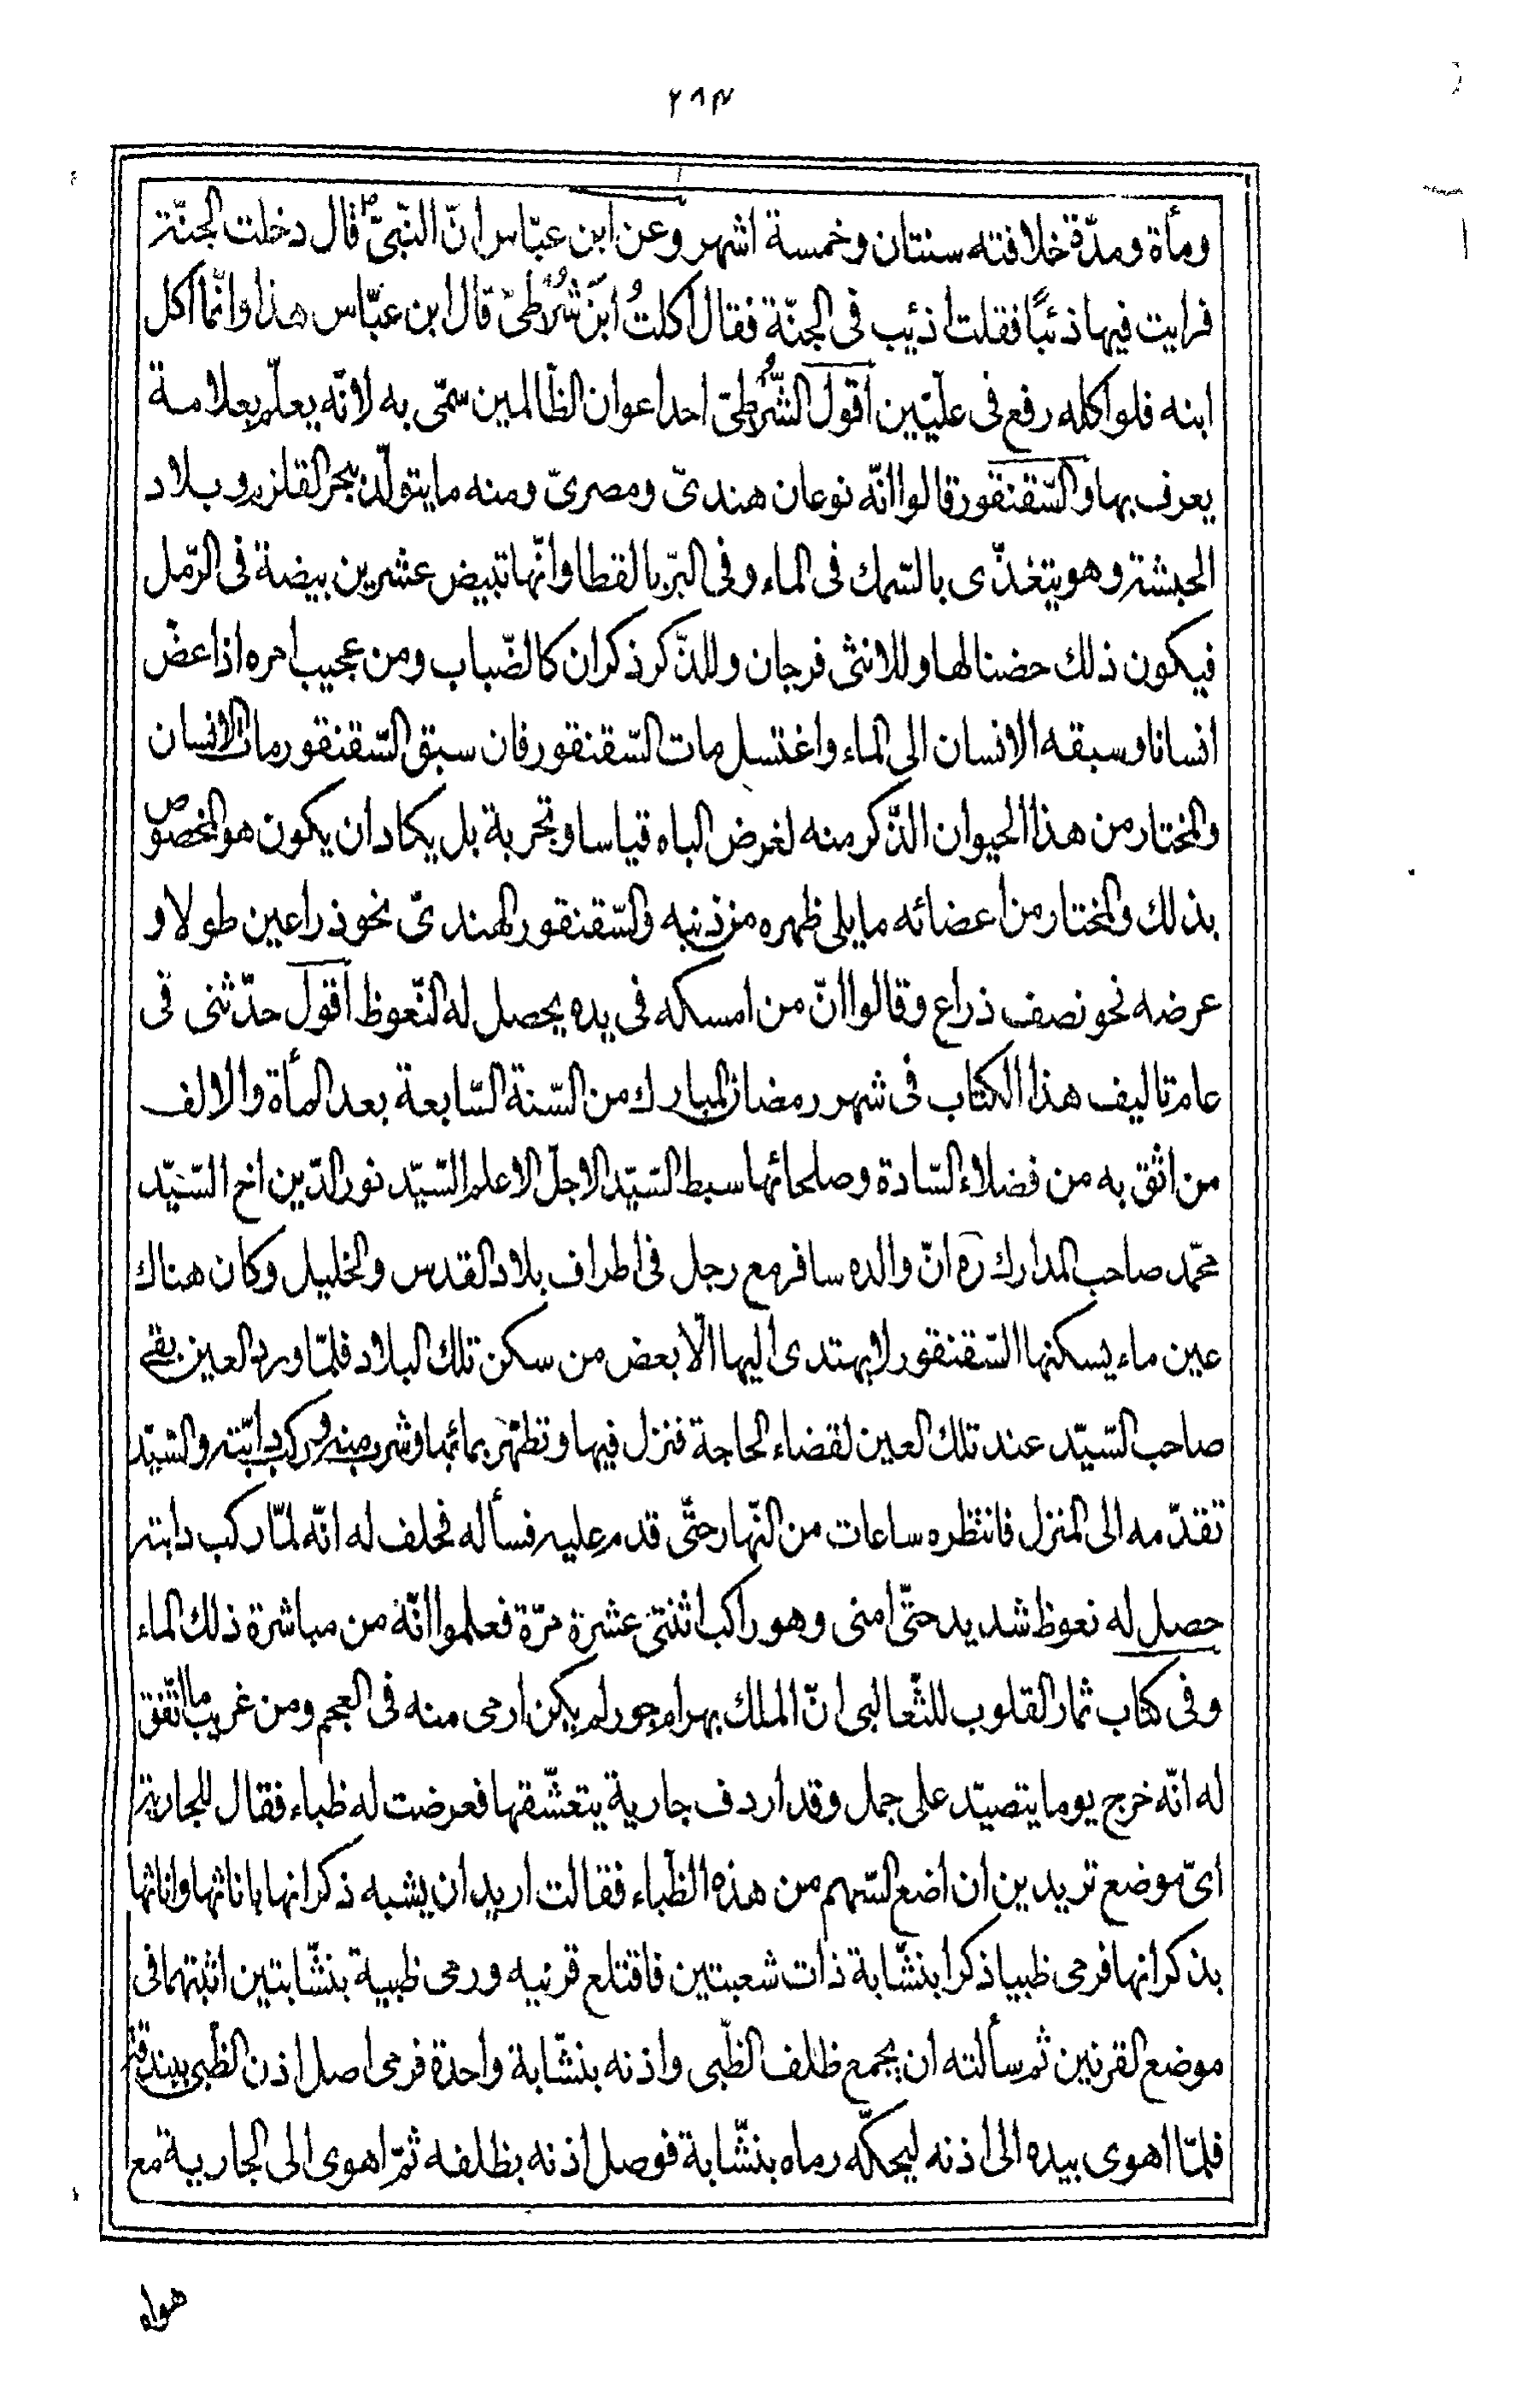 ٢٨٣
ومأة ومدّة خلافته سنتان وخمسة اشهر وعن ابن عبّاس انّ النّبيّ ص قال دخلت الجنّة
فرايت فيها ذئبًا فقلت اذئب فى الجنّة فقال اكلتُ ابنَ شُرُطيّ قال ابن عبّاس هذا وانّما اكل
ابنه فلو اكله رفع فى علّيّين اقول الشُّرُطىّ احد اعوان الظّالمين سمّى به لانّه يعلّم بعلامة
يعرف بها والسّقنقور قالوا انّه نوعان هندىّ ومصرىّ ومنه ما يتولّد ببحر القلزم وبلاد
الحبشة وهو يتغذّى بالسّمك فى الماء وفى البرّ بالقطا وانّها تبيض عشرين بيضة فى الرّمل
فيكون ذلك حضنا لها وللانثى فرجان وللذّكر ذكران كالضّباب ومن عجيب امره اذا عضّ
انسانا وسبقه الانسان الى الماء واغتسل مات السّقنقور فان سبق السّقنقور مات الانسان
والمختار من هذا الحيوان الذّكر منه لغرض الباه قياسا وتجربة بل يكاد ان يكون هو المخصوص
بذلك والمختار من اعضائه ما يلى ظهره من ذنبه والسّقنقور الهندىّ نحو ذراعين طولا و
عرضه نحو نصف ذراع وقالوا انّ من امسكه فى يده يحصل له النّعوظ اقول حدّثنى فى
عام تاليف هذا الكتاب فى شهر رمضان المبارك من السّنة السّابعة بعد المأة والالف
من اثق به من فضلاء السّادة وصلحائها سبط السّيّد الاجلّ الاعلم السّيّد نور الدّين اخ السّيّد
محمّد صاحب المدارك ره انّ والده سافر مع رجل فى اطراف بلاد القدس والخليل وكان هناك
عين ماء يسكنها السّقنقور لا يهتدى اليها الّا بعض من سكن تلك البلاد فلمّا ورد العين بقى
صاحب السّيّد عند تلك العين لقضاء الحاجة فنزل فيها وتطهّر بمائها وشرب منه وركب دابّته والسّيّد
تقدّمه الى المنزل فانتظره ساعات من النّهار حتّى قدم عليه فسأله فحلف له انّه لمّا ركب دابته
حصل له نعوظ شديد حتّى امنى وهو راكب اثنتى عشرة مرّة فعلموا انّه من مباشرة ذلك الماء
وفى كتاب ثمار القلوب للثّعالبى انّ الملك بهرام جور لم يكن ارمى منه فى العجم ومن غريب ما اتّفق
له انّه خرج يوما يتصيّد على جمل وقد اردف جارية يتعشّقها فعرضت له ظباء فقال للجارية
اىّ موضع تريدين ان اضع السّهم من هذه الظّباء فقالت اريد ان يشبه ذكرانها باناثها واناثها
بذكرانها فرمى ظبيا ذكرا بنشّابة ذات شعبتين فاقتلع قرنيه ورمى ظبية بنشّابتين اثبتهما فى
موضع القرنين ثم سألته ان يجمع ظلف الظّبى واذنه بنشّابة واحدة فرمى اصل اذن الظّبى ببندقة
فلمّا اهوى بيده الى اذنه ليحكّه رماه بنشّابة فوصل اذنه بظلفه ثمّ اهوى الى الجارية مع
هواه